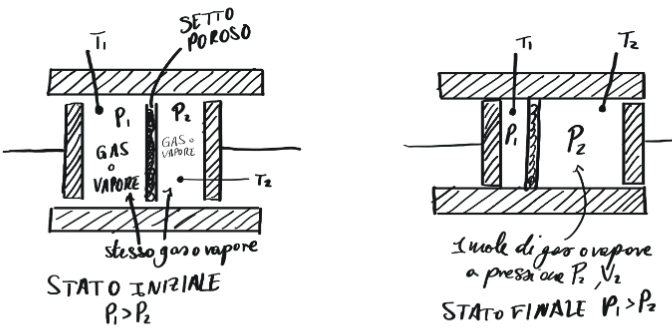 SETTO
POROSO
T₁
P₁
P₂
GAS
o
VAPORE
GAS o
VAPORE
T₂
stesso gas o vapore
STATO INIZIALE
P₁ > P₂
T₁
T₂
P₁
P₂
1 mole di gas o vapore
a pressione P₂, V₂
STATO FINALE P₁ > P₂